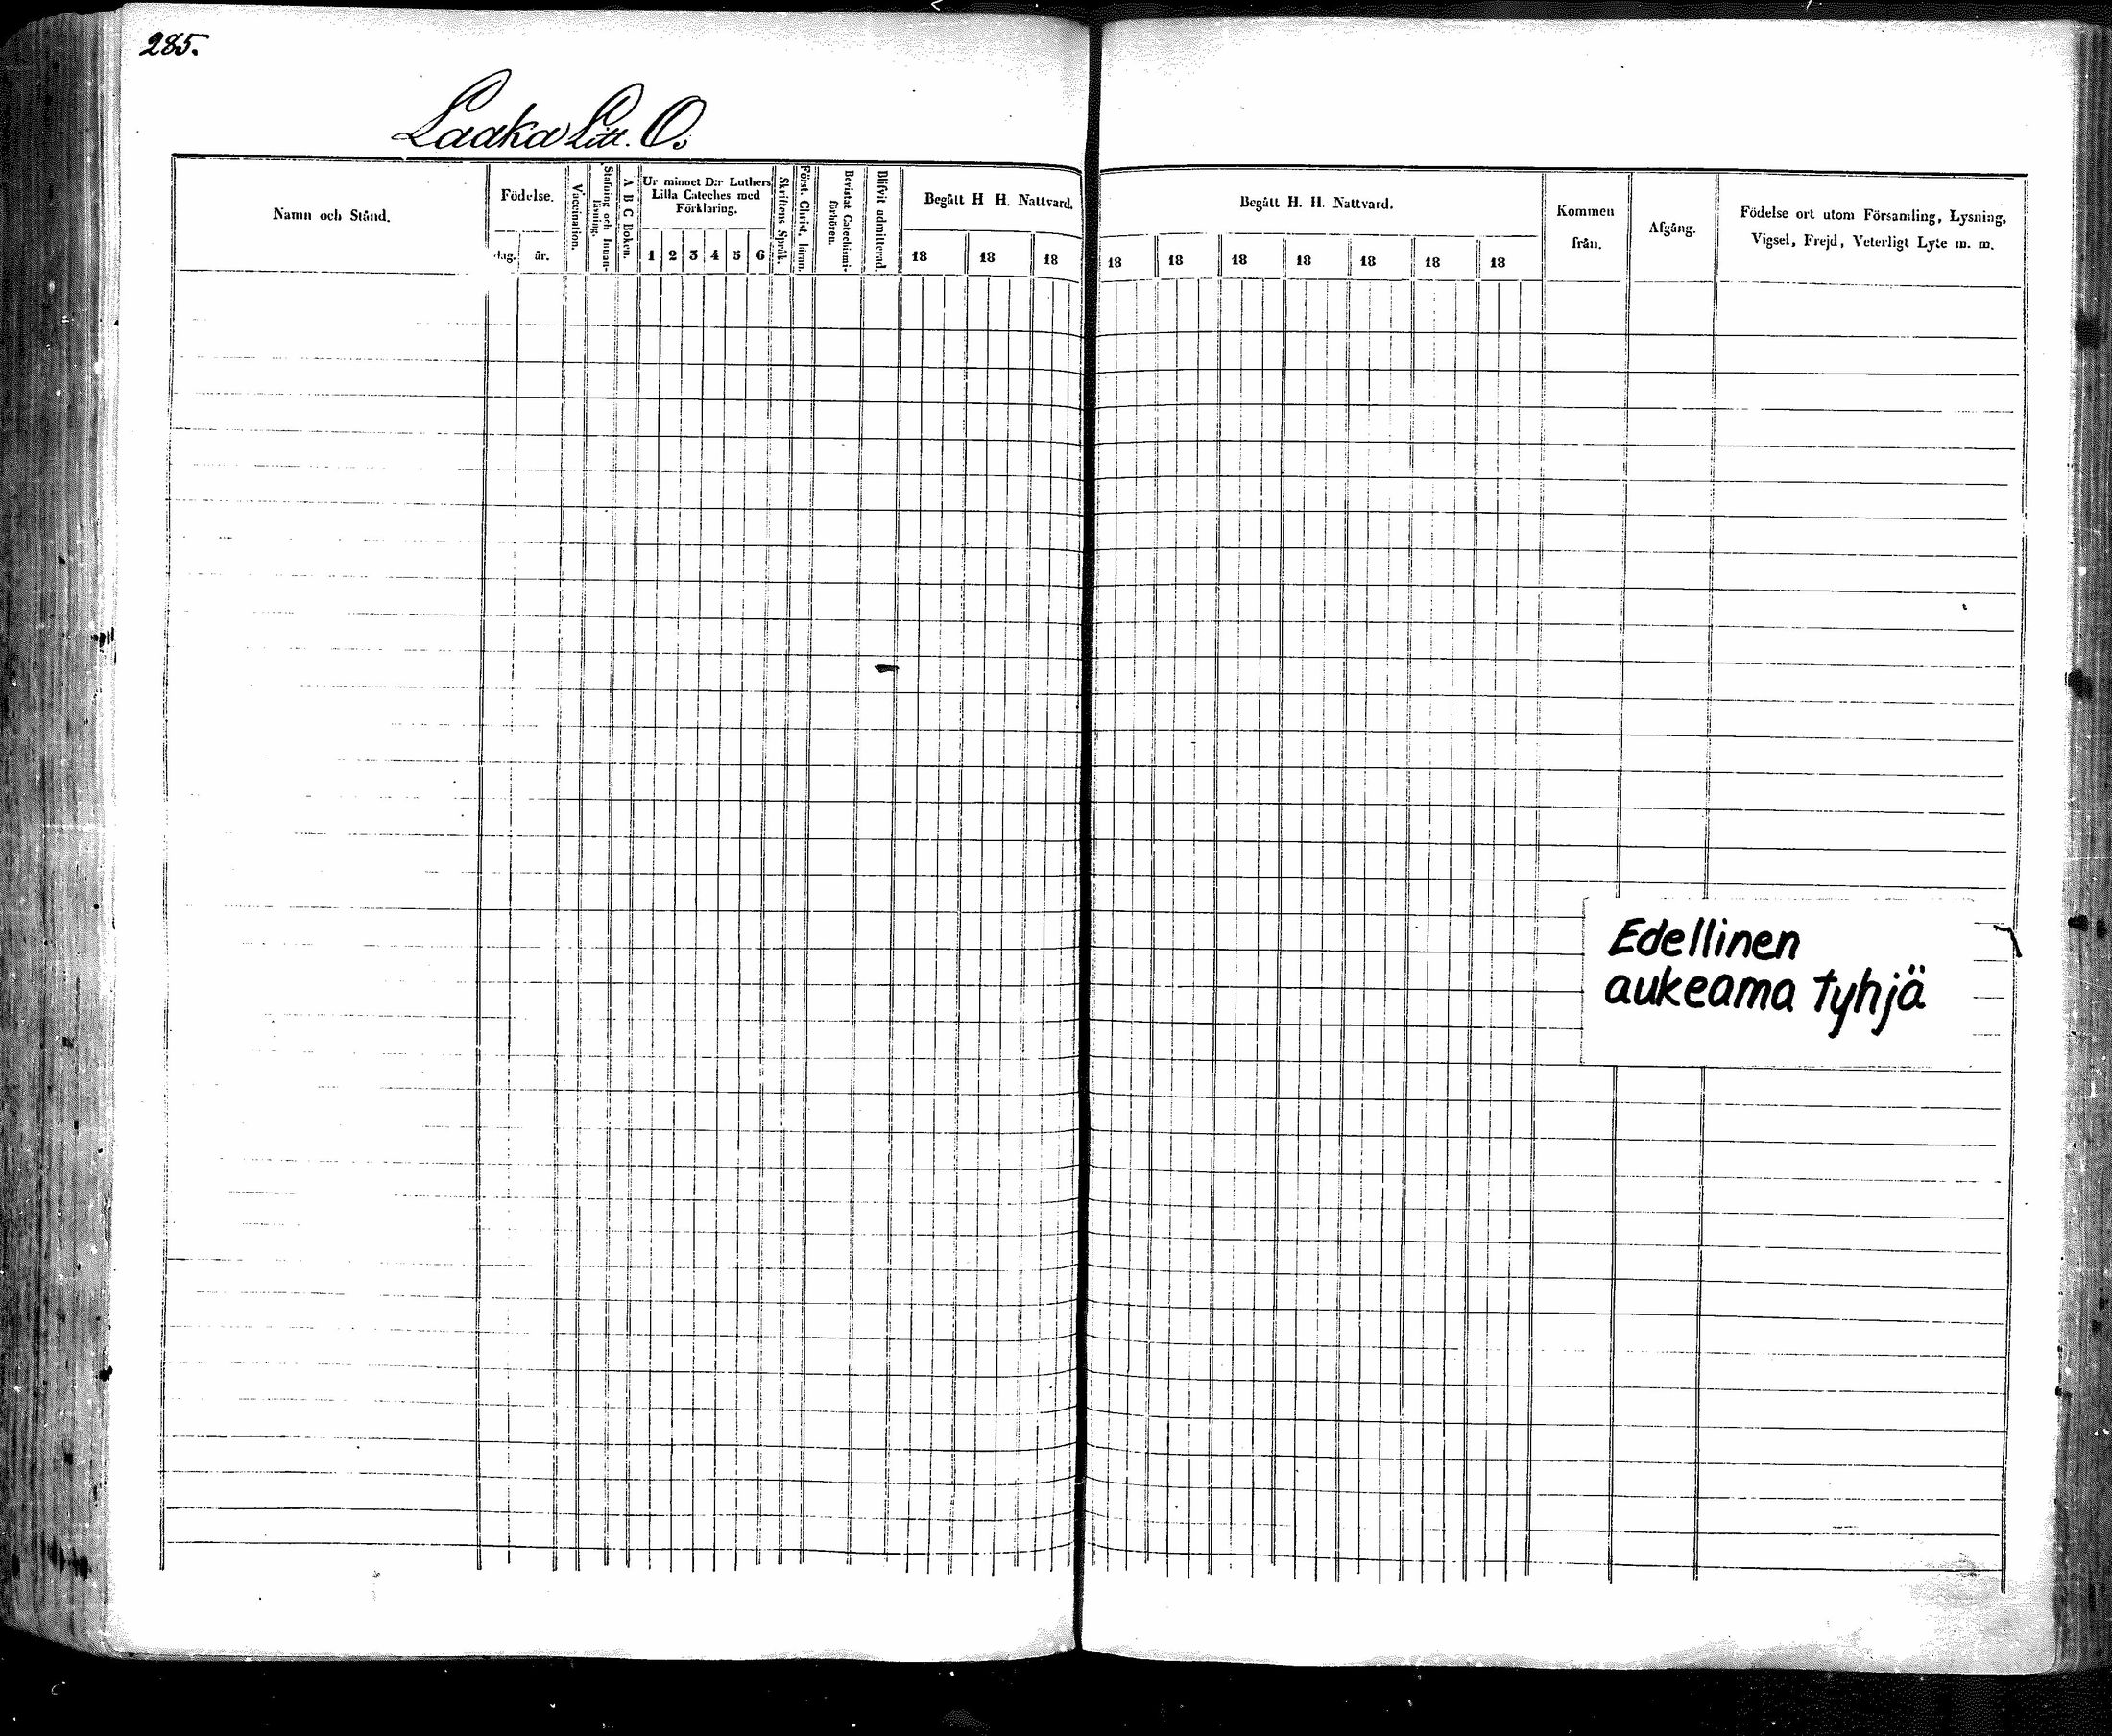 285.
Laaka Litt. O.
Namn och Stånd.
Födelse.
dag.
år.
Vaccination.
Stafning och Innan-
läsning.
A B C Boken.
Ur minnet D:r Luthers
Lilla Cateches med
Förklaring.
1 2 3 4 5 6
Skriftens Språk.
Först. Christ. läran.
Bevistat Catechismi-
förhören.
Blifvit admitterad.
Begått H H. Nattvard.
18 18 18
Begått H. H. Nattvard.
18 18 18 18 18 18 18
Kommen
från.
Afgång.
Födelse ort utom Församling, Lysning,
Vigsel, Frejd, Veterligt Lyte m. m.
Edellinen
aukeama tyhjä